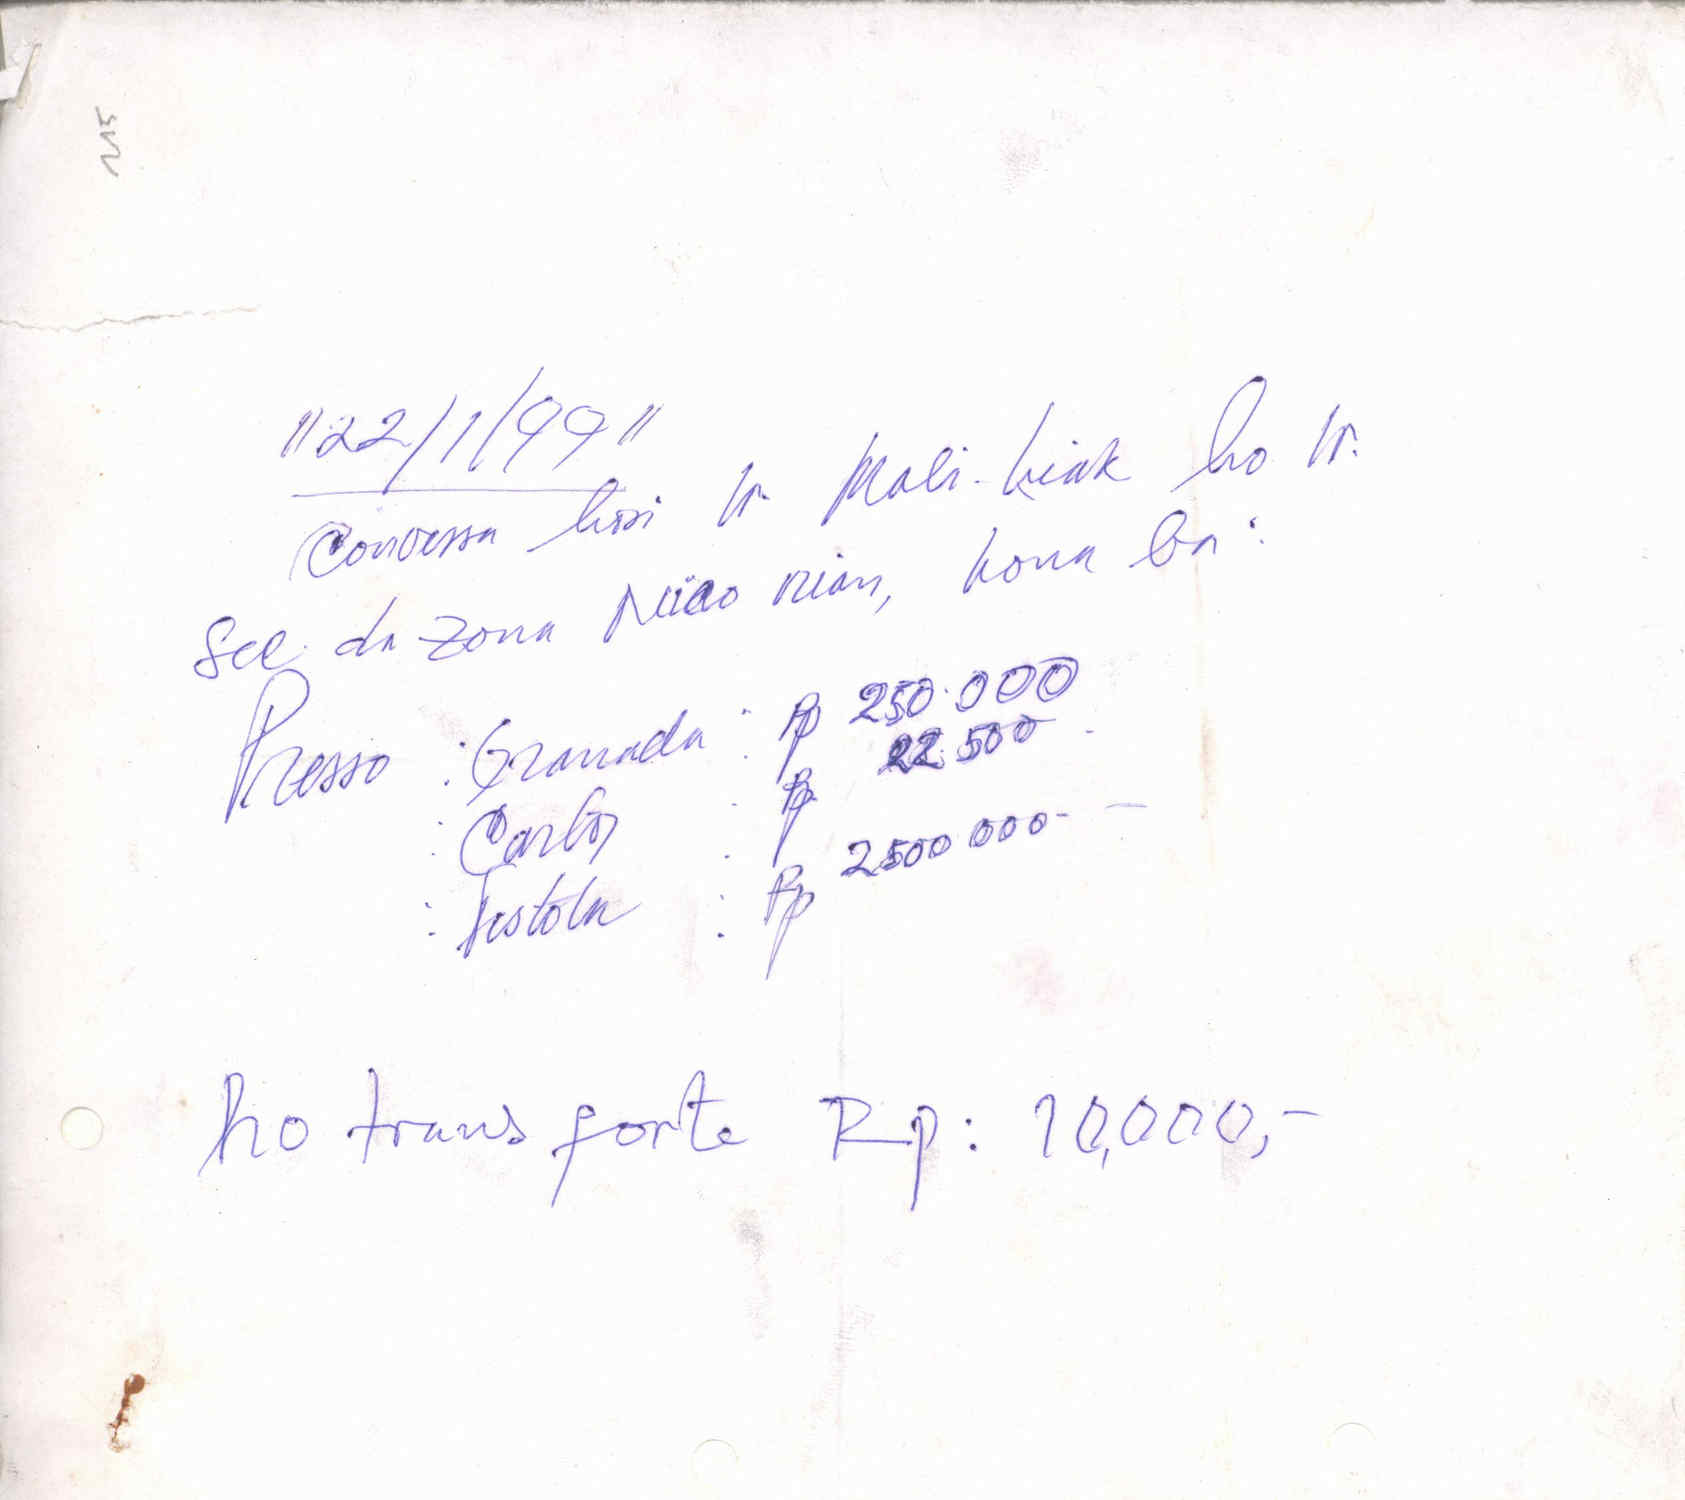 215
"22/1/99"
Conversa hosi Ir. Mali-hiak ho Ir.
Sec. da zona nian, kona ba:
Presso : Granada : Rp 250.000
: Carlos : Rp 22.500
: Pistola : Rp 2500 000-
ho transporte Rp: 10,000,-